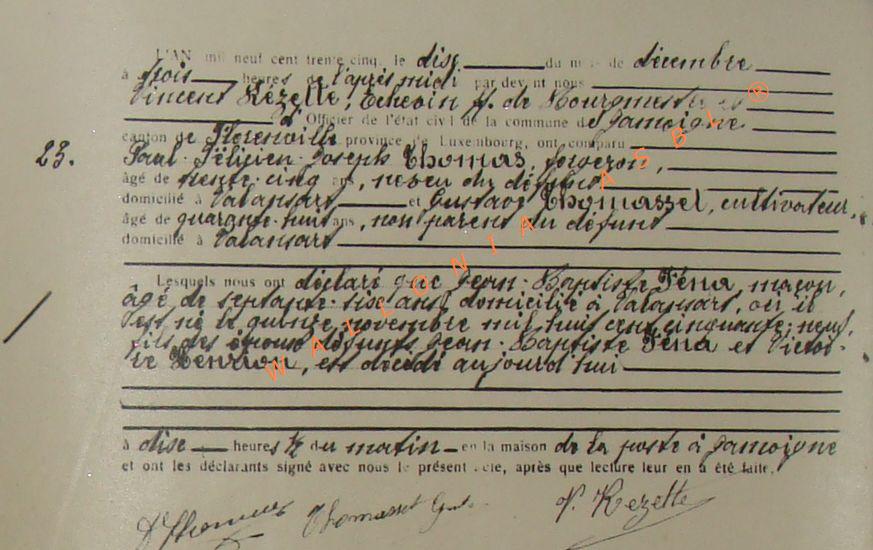 L'AN mil neuf cent trente cinq, le dix du mois de décembre
à trois heures de l'après midi par devant nous
Vincent Rézette, Echevin ff. de Bourgmestre et
d' Officier de l'état civil de la commune de Jamoigne
canton de Florenville province de Luxembourg, ont comparu
23. Paul-Félicien-Joseph Thomas, forgeron,
âgé de trente-cinq ans, neveu du défunt
domicilié à Valansart et Gustave Thomasset, cultivateur,
âgé de quarante-huit ans, non parent du défunt
domicilié à Valansart
Lesquels nous ont déclaré que Jean-Baptiste Féna, maçon,
âgé de septante-six ans, domicilié à Valansart, où il
est né le quinze novembre mil huit cent cinquante-neuf,
fils des époux défunts Jean-Baptiste Féna et Victoi-
re Henrion, est décédé aujourd'hui
à dix heures ½ du matin en la maison de la poste à Jamoigne
et ont les déclarants signé avec nous le présent acte, après que lecture leur en a été faite.
Thomasset Gust. V. Rezette
WALLONIA ASBL ®